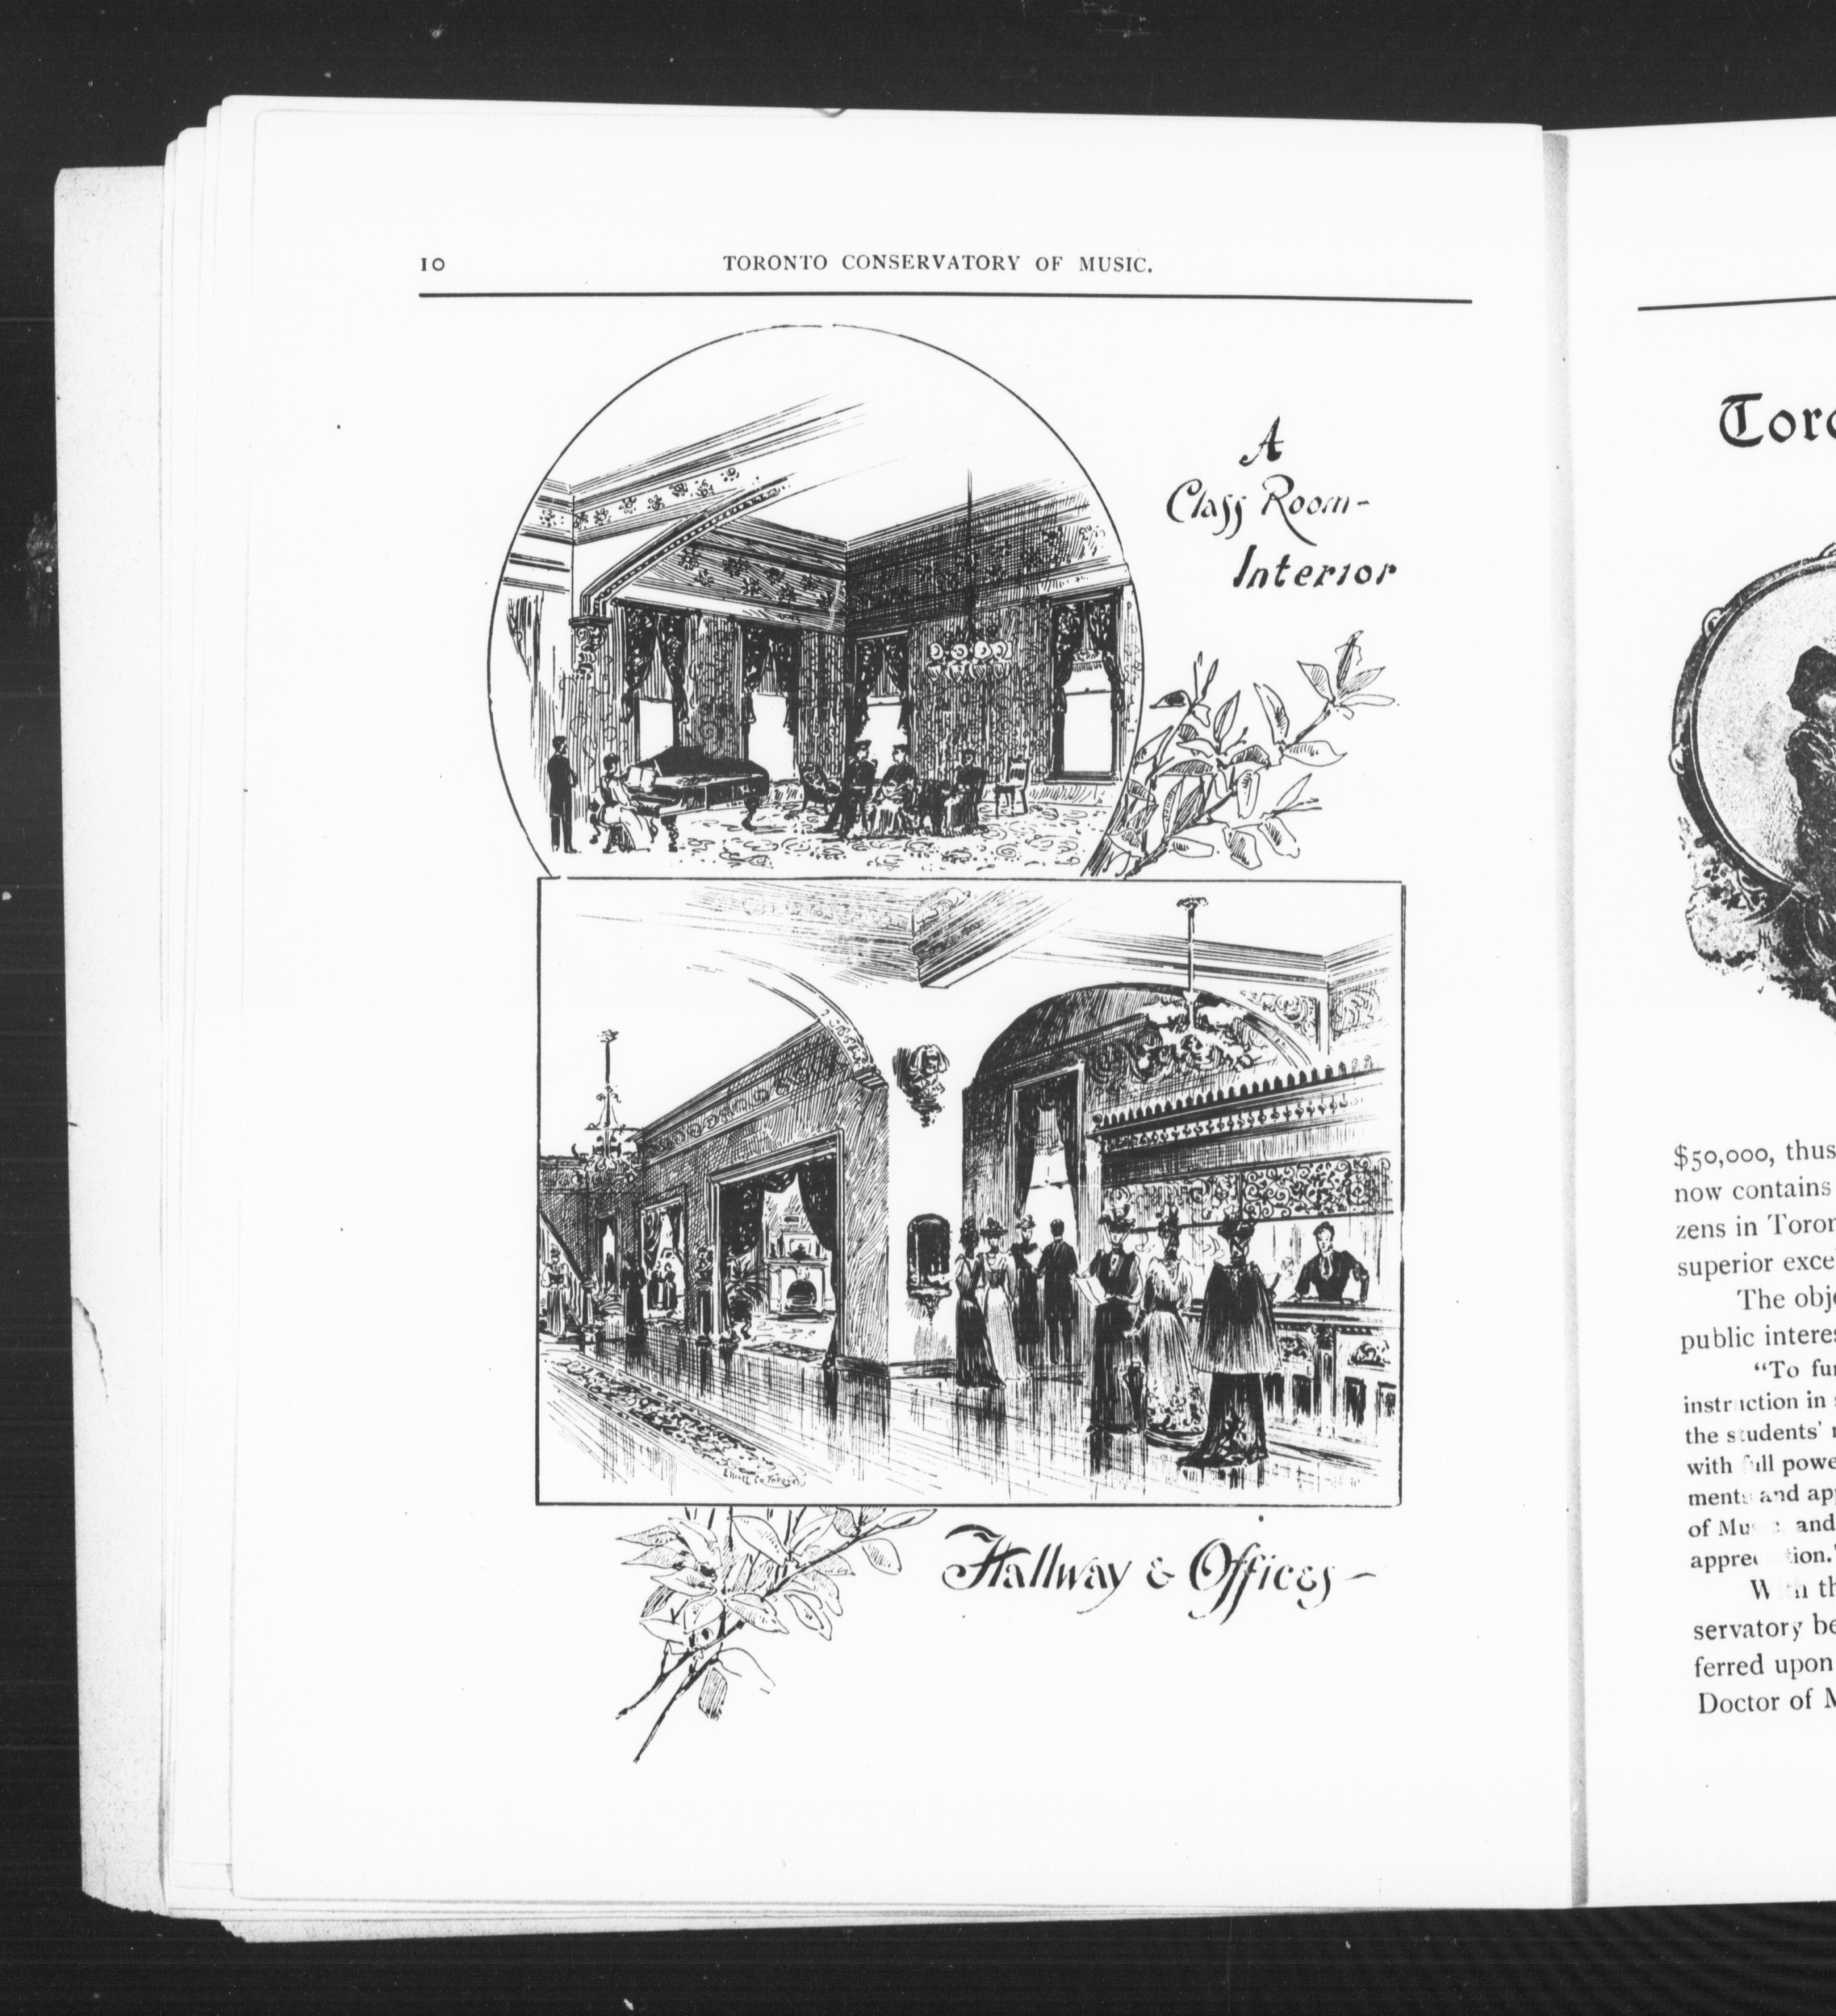 10
TORONTO CONSERVATORY OF MUSIC.
A
Class Room-
Interior
Hallway & Offices-
$50,000, thus
now contains
zens in Toron
superior exce
The obje
public interes
"To fur
instruction in
the students'
with full powe
ments and app
of Mu and
appre tion."
th
servatory be
ferred upon
Doctor of M